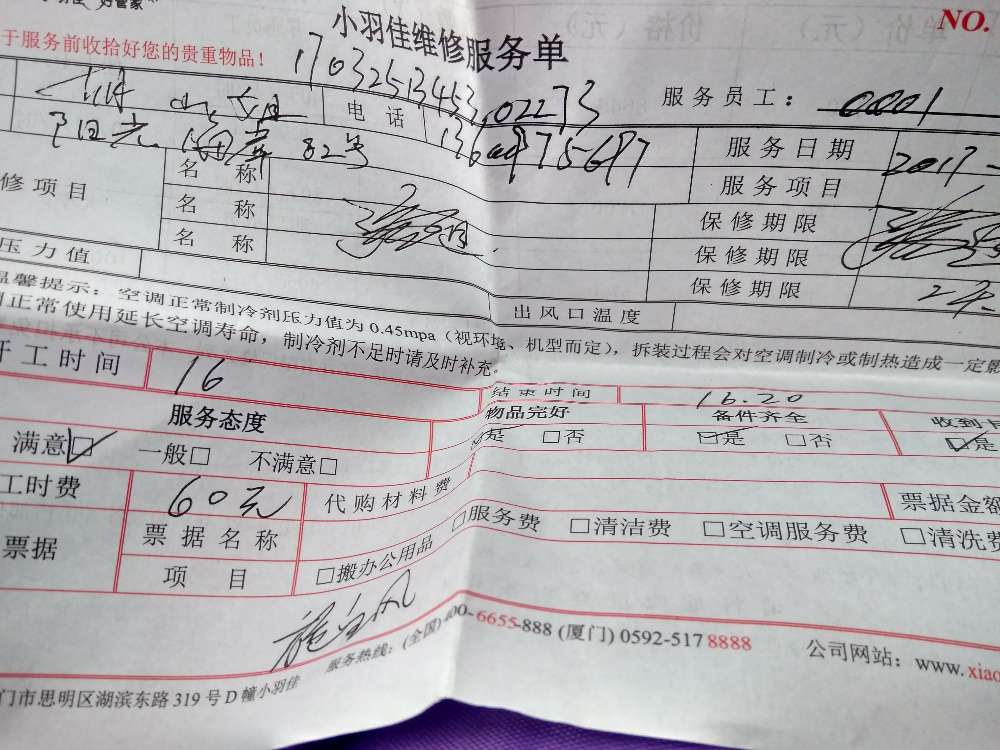 好管家
单价（元） 价格（元）
小羽佳维修服务单
NO.
于服务前收拾好您的贵重物品！
17032513453,02273
服务员工： 0001
电话
阳光海岸82号
服务日期 2017-
名称
修项目
服务项目
名称
保修期限
名称
保修期限
压力值
保修期限 2年
出风口温度
温馨提示：空调正常制冷剂压力值为0.45mpa（视环境、机型而定），拆装过程会对空调制冷或制热造成一定影
正常使用延长空调寿命，制冷剂不足时请及时补充。
开工时间 16
结束时间 16.20
服务态度
物品完好 备件齐全 收到
满意☑ 一般□ 不满意□
☑是 □否 ☑是 □否 ☑是
工时费 60元 代购材料费
票据金额
票据 票据名称
□服务费 □清洁费 □空调服务费 □清洗费
项目 □搬办公用品
服务热线：(全国)400-6655-888 (厦门) 0592-5178888 公司网站：www.xiao
门市思明区湖滨东路319号D幢小羽佳